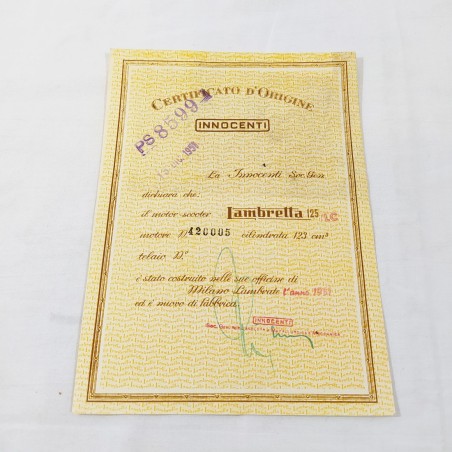 CERTIFICATO D'ORIGINE
INNOCENTI
PS 85994
1951
La Innocenti Soc. Gen.
dichiara che:
il motor scooter Lambretta 125 LC
motore N° 420005 cilindrata 123 cm³
telaio N°
è stato costruito nelle sue officine di
Milano Lambrate l'anno 1951
ed è nuovo di fabbrica.
INNOCENTI